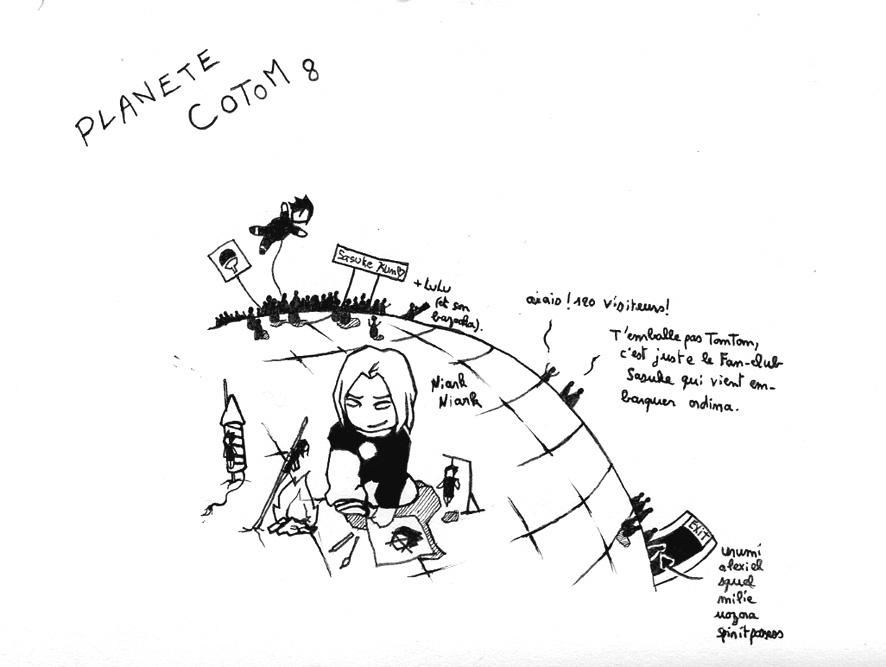 PLANETE
COTOM 8
Sasuke Kun♡
+ LuLu
(et son
bazooka).
aiaio ! 120 visiteurs !
T'emballe pas TomTom,
c'est juste le Fan-club
Sasuke qui vient em-
barquer ordina.
Niark
Niark
EXIT
unumi
alexiel
squel
milie
uozora